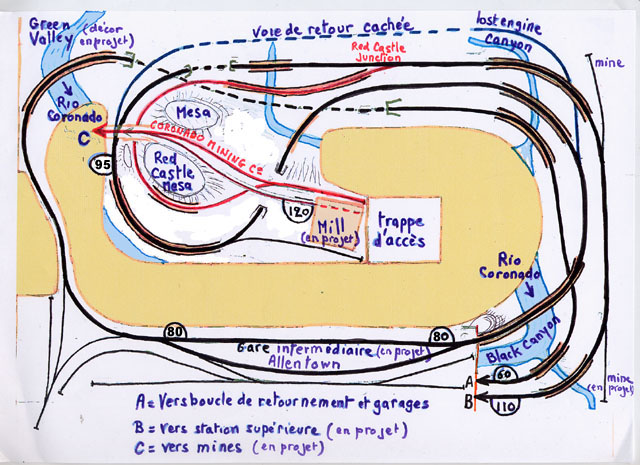 Green
Valley (décor
en projet)
voie de retour cachée
lost engine
Canyon
Red Castle
Junction
mine
Rio
Coronado
Mesa
C
CORONADO MINING Cº
95
Red
Castle
Mesa
120
Mill
(en projet)
trappe
d'accès
Rio
Coronado
80
80
Gare intermédiaire (en projet)
Allentown
Black Canyon
A
60
B
110
mine
(en projet)
A = Vers boucle de retournement et garages
B = vers station supérieure (en projet)
C = vers mines (en projet)